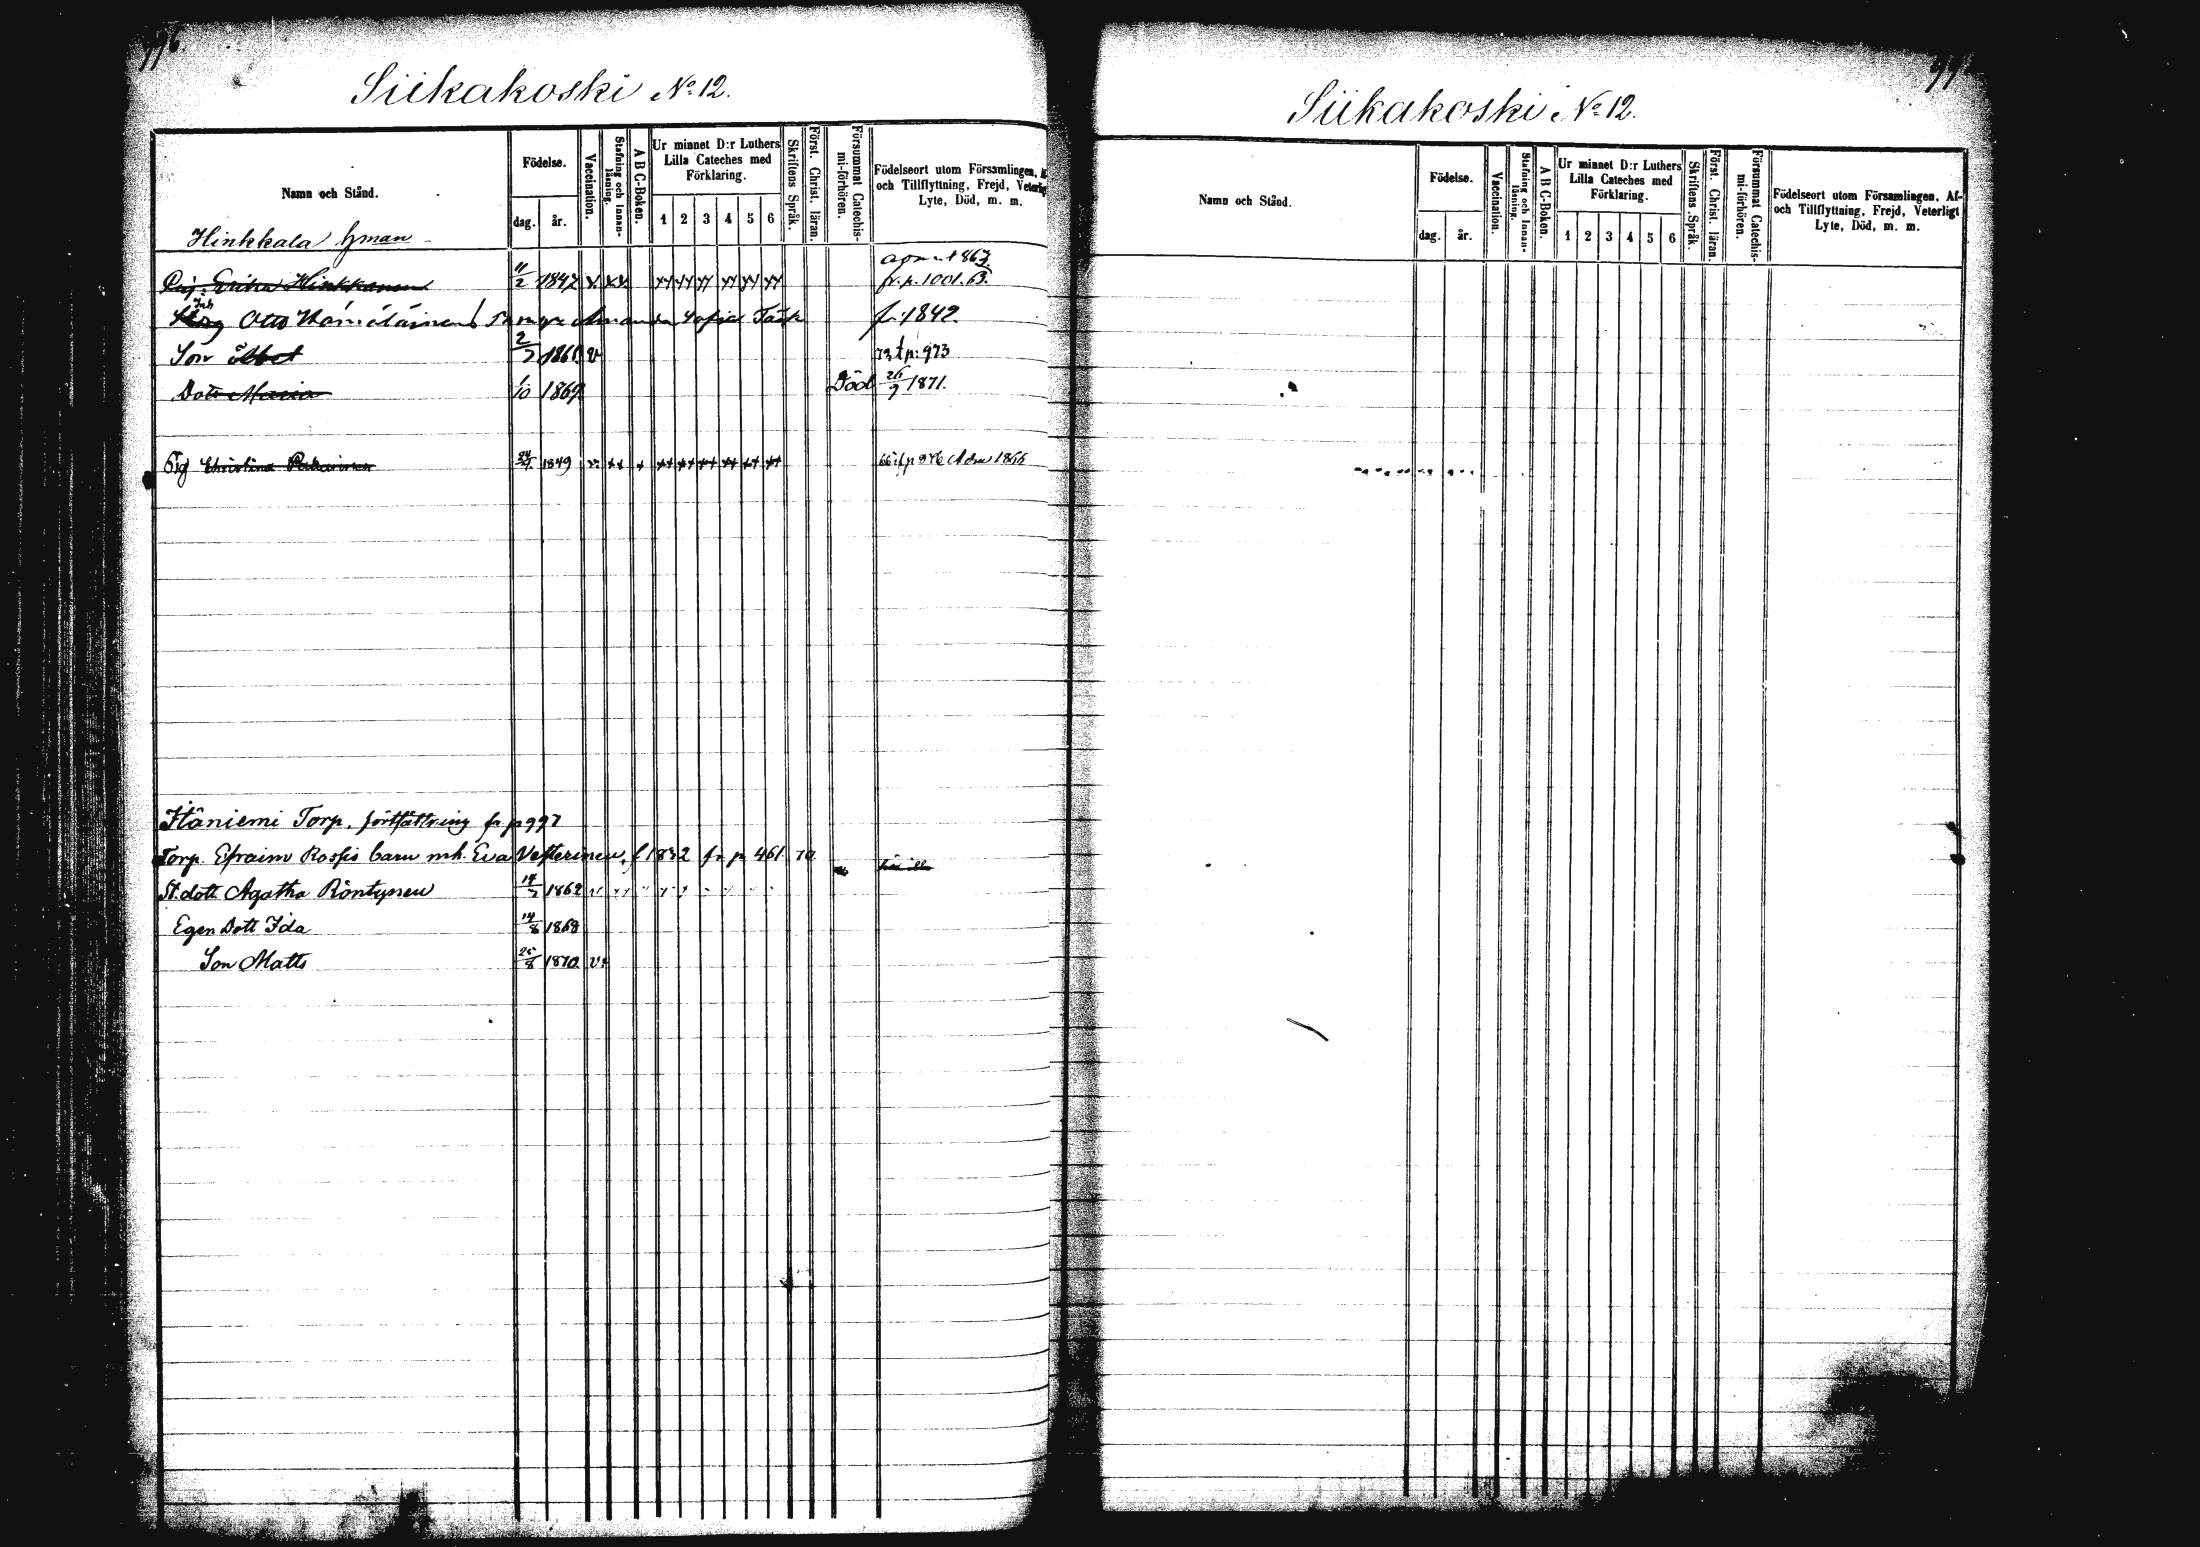 996.
Siikakoski No 12.
Namn och Stånd.
Födelse.
dag. år.
Vaccination.
Stafning och Innan-läsning.
A B C-Boken.
Ur minnet D:r Luthers
Lilla Cateches med
Förklaring.
1 2 3 4 5 6
Skriftens Språk.
Först. Christ. läran.
Försummat Catechis-mi-förhören.
Födelseort utom Församlingen,
och Tillflyttning, Frejd,
Lyte, Död, m. m.
Hinkkala hman
1867
Pig. Erika Hinkkanen 11/2 1847 fr. p. 1001. 63.
Otto Hämäläinens Amanda Sofia f. 1842.
Son 2/7 1861 v 73 t p: 973
Dott Maria 1/10 1869 Död 26/9 1871.
Pig Christina 1849 1866
Itäniemi Torp. fortsättning fr p 997
Torp. Efraim Rossis barn mh. Eva Vesterinen, f 1832 fr p 461 70
St. dott Agatha Röntynen 1862
Egen Dott Ida 14/8 1868
Son Matts 25/8 1870 v.
Siikakoski No 12.
Namn och Stånd.
Födelse.
dag. år.
Vaccination.
Stafning och Innan-läsning.
A B C-Boken.
Ur minnet D:r Luthers
Lilla Cateches med
Förklaring.
1 2 3 4 5 6
Skriftens Språk.
Först. Christ. läran.
Försummat Catechis-mi-förhören.
Födelseort utom Församlingen, Af-
och Tillflyttning, Frejd, Veterligt
Lyte, Död, m. m.